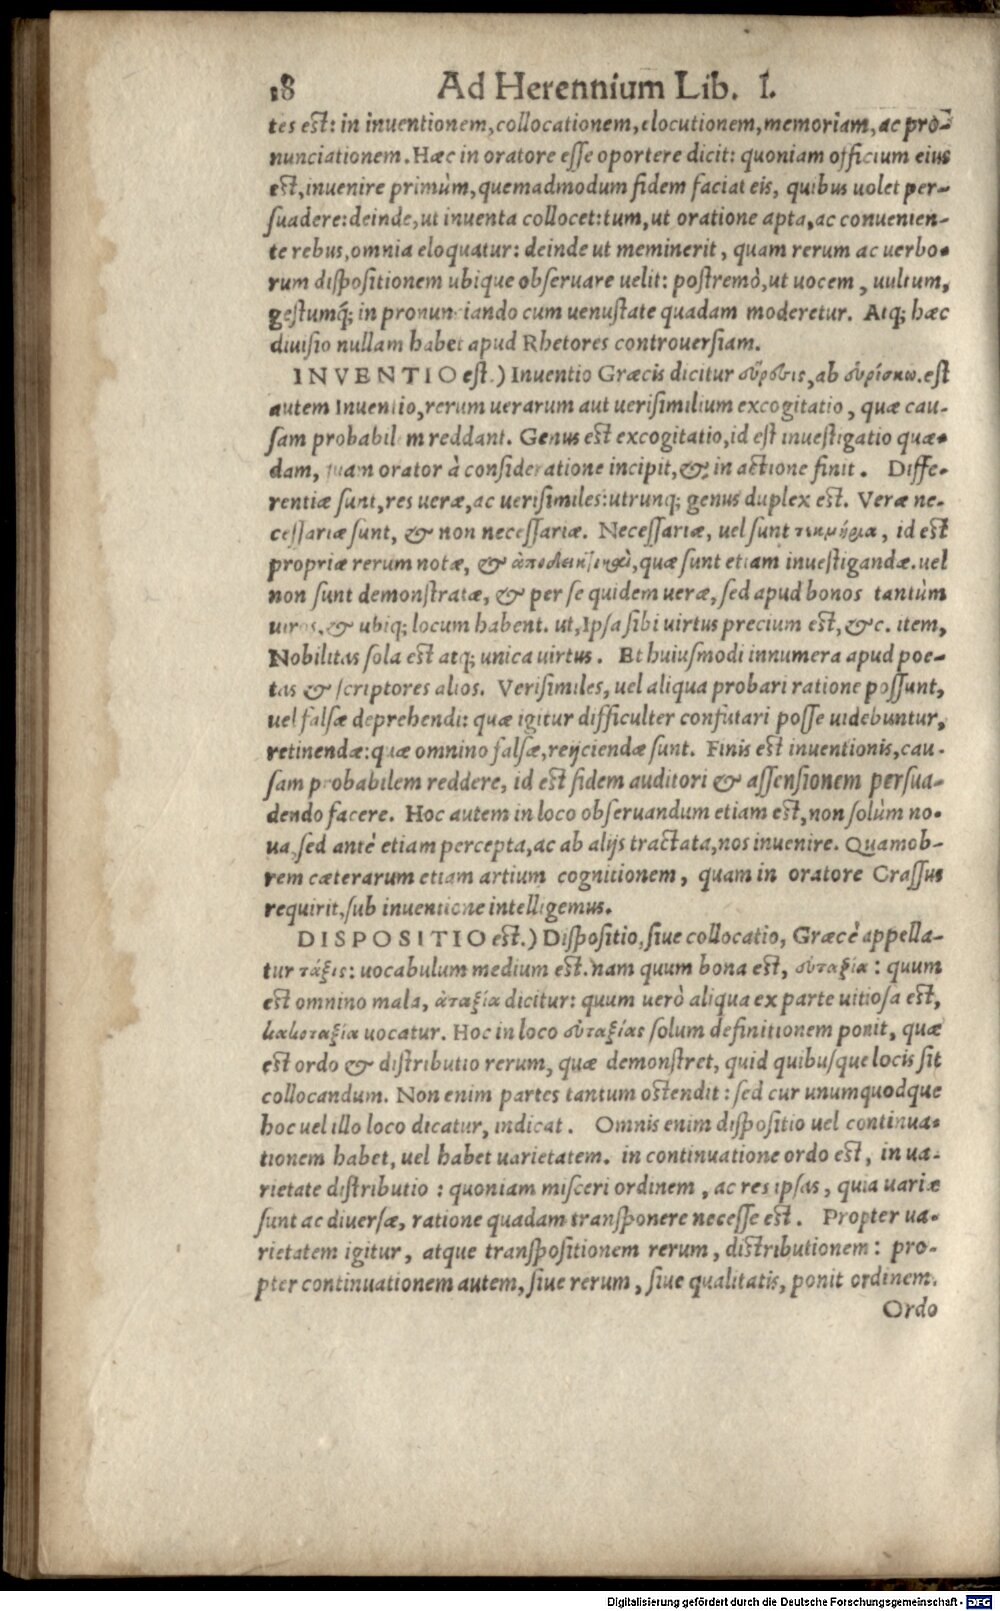 18 Ad Herennium Lib. I.
tes est: in inuentionem, collocationem, elocutionem, memoriam, ac pro-
nunciationem. Hæc in oratore esse oportere dicit: quoniam officium eius
est, inuenire primùm, quemadmodum fidem faciat eis, quibus uolet per-
suadere: deinde, ut inuenta collocet: tum, ut oratione apta, ac conuenien-
te rebus, omnia eloquatur: deinde ut meminerit, quam rerum ac uerbo-
rum dispositionem ubique obseruare uelit: postremò, ut uocem, uultum,
gestumq́; in pronunciando cum uenustate quadam moderetur. Atq; hæc
diuisio nullam habet apud Rhetores controuersiam.
INVENTIO est.) Inuentio Græcis dicitur εὕρεσις, ab εὑρίσκω. est
autem Inuentio, rerum uerarum aut uerisimilium excogitatio, quæ cau-
sam probabilem reddant. Genus est excogitatio, id est inuestigatio quæ-
dam, quam orator à consideratione incipit, & in actione finit. Diffe-
rentiæ sunt, res ueræ, ac uerisimiles: utrunq; genus duplex est. Veræ ne-
cessariæ sunt, & non necessariæ. Necessariæ, uel sunt τεκμήρια, id est
propriæ rerum notæ, & ἀποδεικτικὰ, quæ sunt etiam inuestigandæ. uel
non sunt demonstratæ, & per se quidem ueræ, sed apud bonos tantùm
uiros, & ubiq; locum habent. ut, Ipsa sibi uirtus precium est, &c. item,
Nobilitas sola est atq; unica uirtus. Et huiusmodi innumera apud poe-
tas & scriptores alios. Verisimiles, uel aliqua probari ratione possunt,
uel falsæ deprehendi: quæ igitur difficulter confutari posse uidebuntur,
retinendæ: quæ omnino falsæ, reijciendæ sunt. Finis est inuentionis, cau-
sam probabilem reddere, id est fidem auditori & assensionem persua-
dendo facere. Hoc autem in loco obseruandum etiam est, non solùm no-
ua, sed antè etiam percepta, ac ab alijs tractata, nos inuenire. Quamob-
rem cæterarum etiam artium cognitionem, quam in oratore Crassus
requirit, sub inuentione intelligemus.
DISPOSITIO est.) Dispositio, siue collocatio, Græcè appella-
tur τάξις: uocabulum medium est. nam quum bona est, εὐταξία: quum
est omnino mala, ἀταξία dicitur: quum uerò aliqua ex parte uitiosa est,
κακοταξία uocatur. Hoc in loco εὐταξίας solum definitionem ponit, quæ
est ordo & distributio rerum, quæ demonstret, quid quibusque locis sit
collocandum. Non enim partes tantum ostendit: sed cur unumquodque
hoc uel illo loco dicatur, indicat. Omnis enim dispositio uel continua-
tionem habet, uel habet uarietatem. in continuatione ordo est, in ua-
rietate distributio: quoniam misceri ordinem, ac res ipsas, quia uariæ
sunt ac diuersæ, ratione quadam transponere necesse est. Propter ua-
rietatem igitur, atque transpositionem rerum, distributionem: pro-
pter continuationem autem, siue rerum, siue qualitatis, ponit ordinem.
Ordo
Digitalisierung gefördert durch die Deutsche Forschungsgemeinschaft - DFG